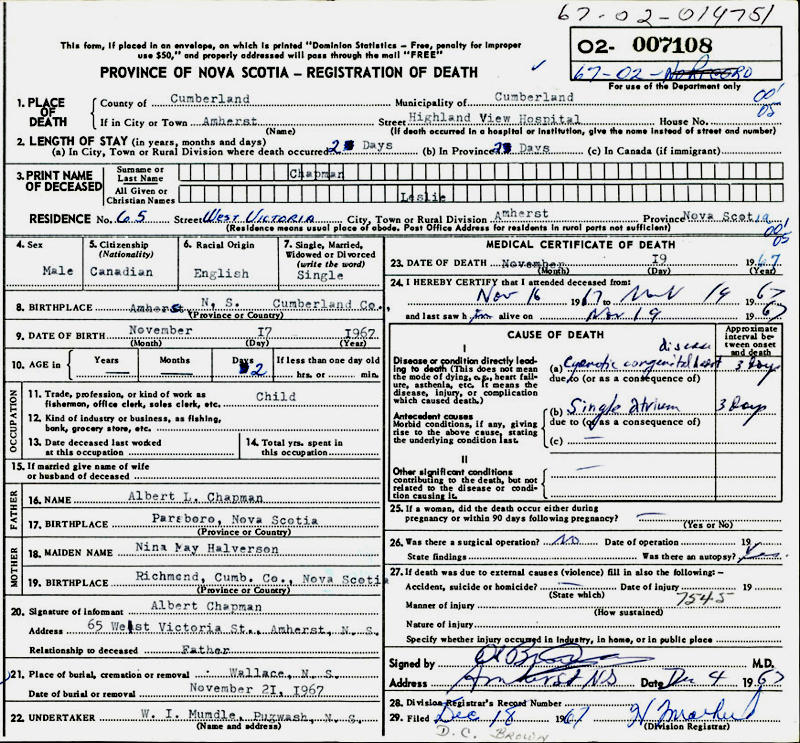 67-02-014751
This form, if placed in an envelope, on which is printed "Dominion Statistics – Free, penalty for improper
use $50," and properly addressed will pass through the mail "FREE"
02- 007108
PROVINCE OF NOVA SCOTIA – REGISTRATION OF DEATH
67-02-
For use of the Department only
1. PLACE OF DEATH { County of Cumberland Municipality of Cumberland 001/05
If in City or Town Amherst (Name) Street Highland View Hospital House No.
(If death occurred in a hospital or institution, give the name instead of street and number)
2. LENGTH OF STAY (in years, months and days)
(a) In City, Town or Rural Division where death occurred 2 Days (b) In Province 2 Days (c) In Canada (if immigrant)
3. PRINT NAME OF DECEASED { Surname or Last Name Chapman
All Given or Christian Names Leslie
RESIDENCE No. 65 Street West Victoria City, Town or Rural Division Amherst Province Nova Scotia
(Residence means usual place of abode. Post Office Address for residents in rural ports not sufficient) 001/05
4. Sex Male
5. Citizenship (Nationality) Canadian
6. Racial Origin English
7. Single, Married, Widowed or Divorced (write the word) Single
8. BIRTHPLACE Amherst N, S. Cumberland Co.,
(Province or Country)
9. DATE OF BIRTH November 17 1967
(Month) (Day) (Year)
10. AGE in { Years Months Days 2 If less than one day old
hrs. or min.
OCCUPATION
11. Trade, profession, or kind of work as fishermon, office clerk, sales clerk, etc. Child
12. Kind of industry or business, as fishing, bank, grocery store, etc.
13. Date deceased last worked at this occupation
14. Total yrs. spent in this occupation
15. If married give name of wife or husband of deceased
FATHER
16. NAME Albert L. Chapman
17. BIRTHPLACE Parsboro, Nova Scotia
(Province or Country)
MOTHER
18. MAIDEN NAME Nina May Halverson
19. BIRTHPLACE Richmond, Cumb. Co., Nova Scotia
(Province or Country)
20. Signature of informant Albert Chapman
Address 65 West Victoria St., Amherst, N. S.
Relationship to deceased Father
21. Place of burial, cremation or removal Wallace, N. S.
Date of burial or removal November 21, 1967
22. UNDERTAKER W. I. Mumdle, Pugwash, N. S.
(Name and address)
MEDICAL CERTIFICATE OF DEATH
23. DATE OF DEATH November 19 1967
(Month) (Day) (Year)
24. I HEREBY CERTIFY that I attended deceased from:
Nov 16 1967 to Nov 19 1967
and last saw him alive on Nov 19 1967
CAUSE OF DEATH
Approximate interval between onset and death
I
Disease or condition directly leading to death (This does not mean the mode of dying, e.g., heart failure, asthenia, etc. It means the disease, injury, or complication which caused death.)
(a) Cyanotic congenital heart disease 3 Days
due to (or as a consequence of)
Antecedent causes
Morbid conditions, if any, giving rise to the above cause, stating the underlying condition last.
(b) Single atrium 3 Days
due to (or as a consequence of)
(c) —
II
Other significant conditions contributing to the death, but not related to the disease or condition causing it.
25. If a woman, did the death occur either during
pregnancy or within 90 days following pregnancy? —
(Yes or No)
26. Was there a surgical operation? No Date of operation 19
State findings Was there an autopsy? Yes.
27. If death was due to external causes (violence) fill in also the following:–
Accident, suicide or homicide? Date of injury 19
(State which) 7545
Manner of injury
(How sustained)
Nature of injury
Specify whether injury occurred in industry, in home, or in public place
Signed by M.D.
Address Amherst NS Date Dec 4 1967
28. Division Registrar's Record Number
29. Filed Dec 18 1967
(Division Registrar)
D. C. BROWN